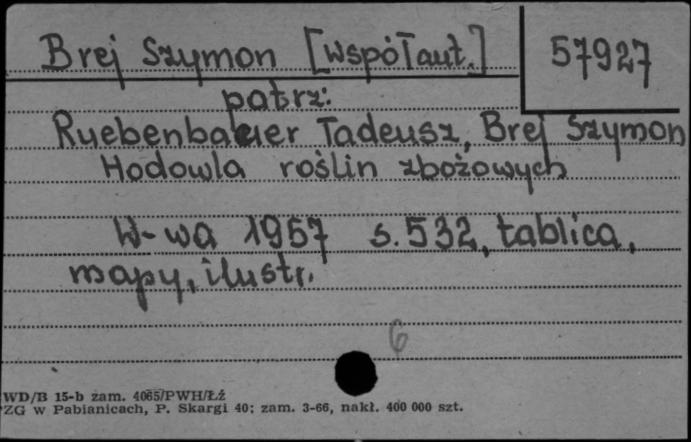 Brej Szymon [współaut.] 57927
patrz:
Ruebenbauer Tadeusz, Brej Szymon
Hodowla roślin zbożowych
W-wa 1957 s. 532, tablica,
mapy, ilustr.
6
WD/B 15-b zam. 4065/PWH/Łź
ZG w Pabianicach, P. Skargi 40; zam. 3-66, nakł. 400 000 szt.